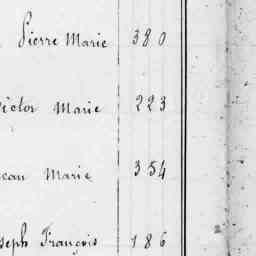 Pierre Marie 380
Victor Marie 223
Jean Marie 354
Joseph François 186